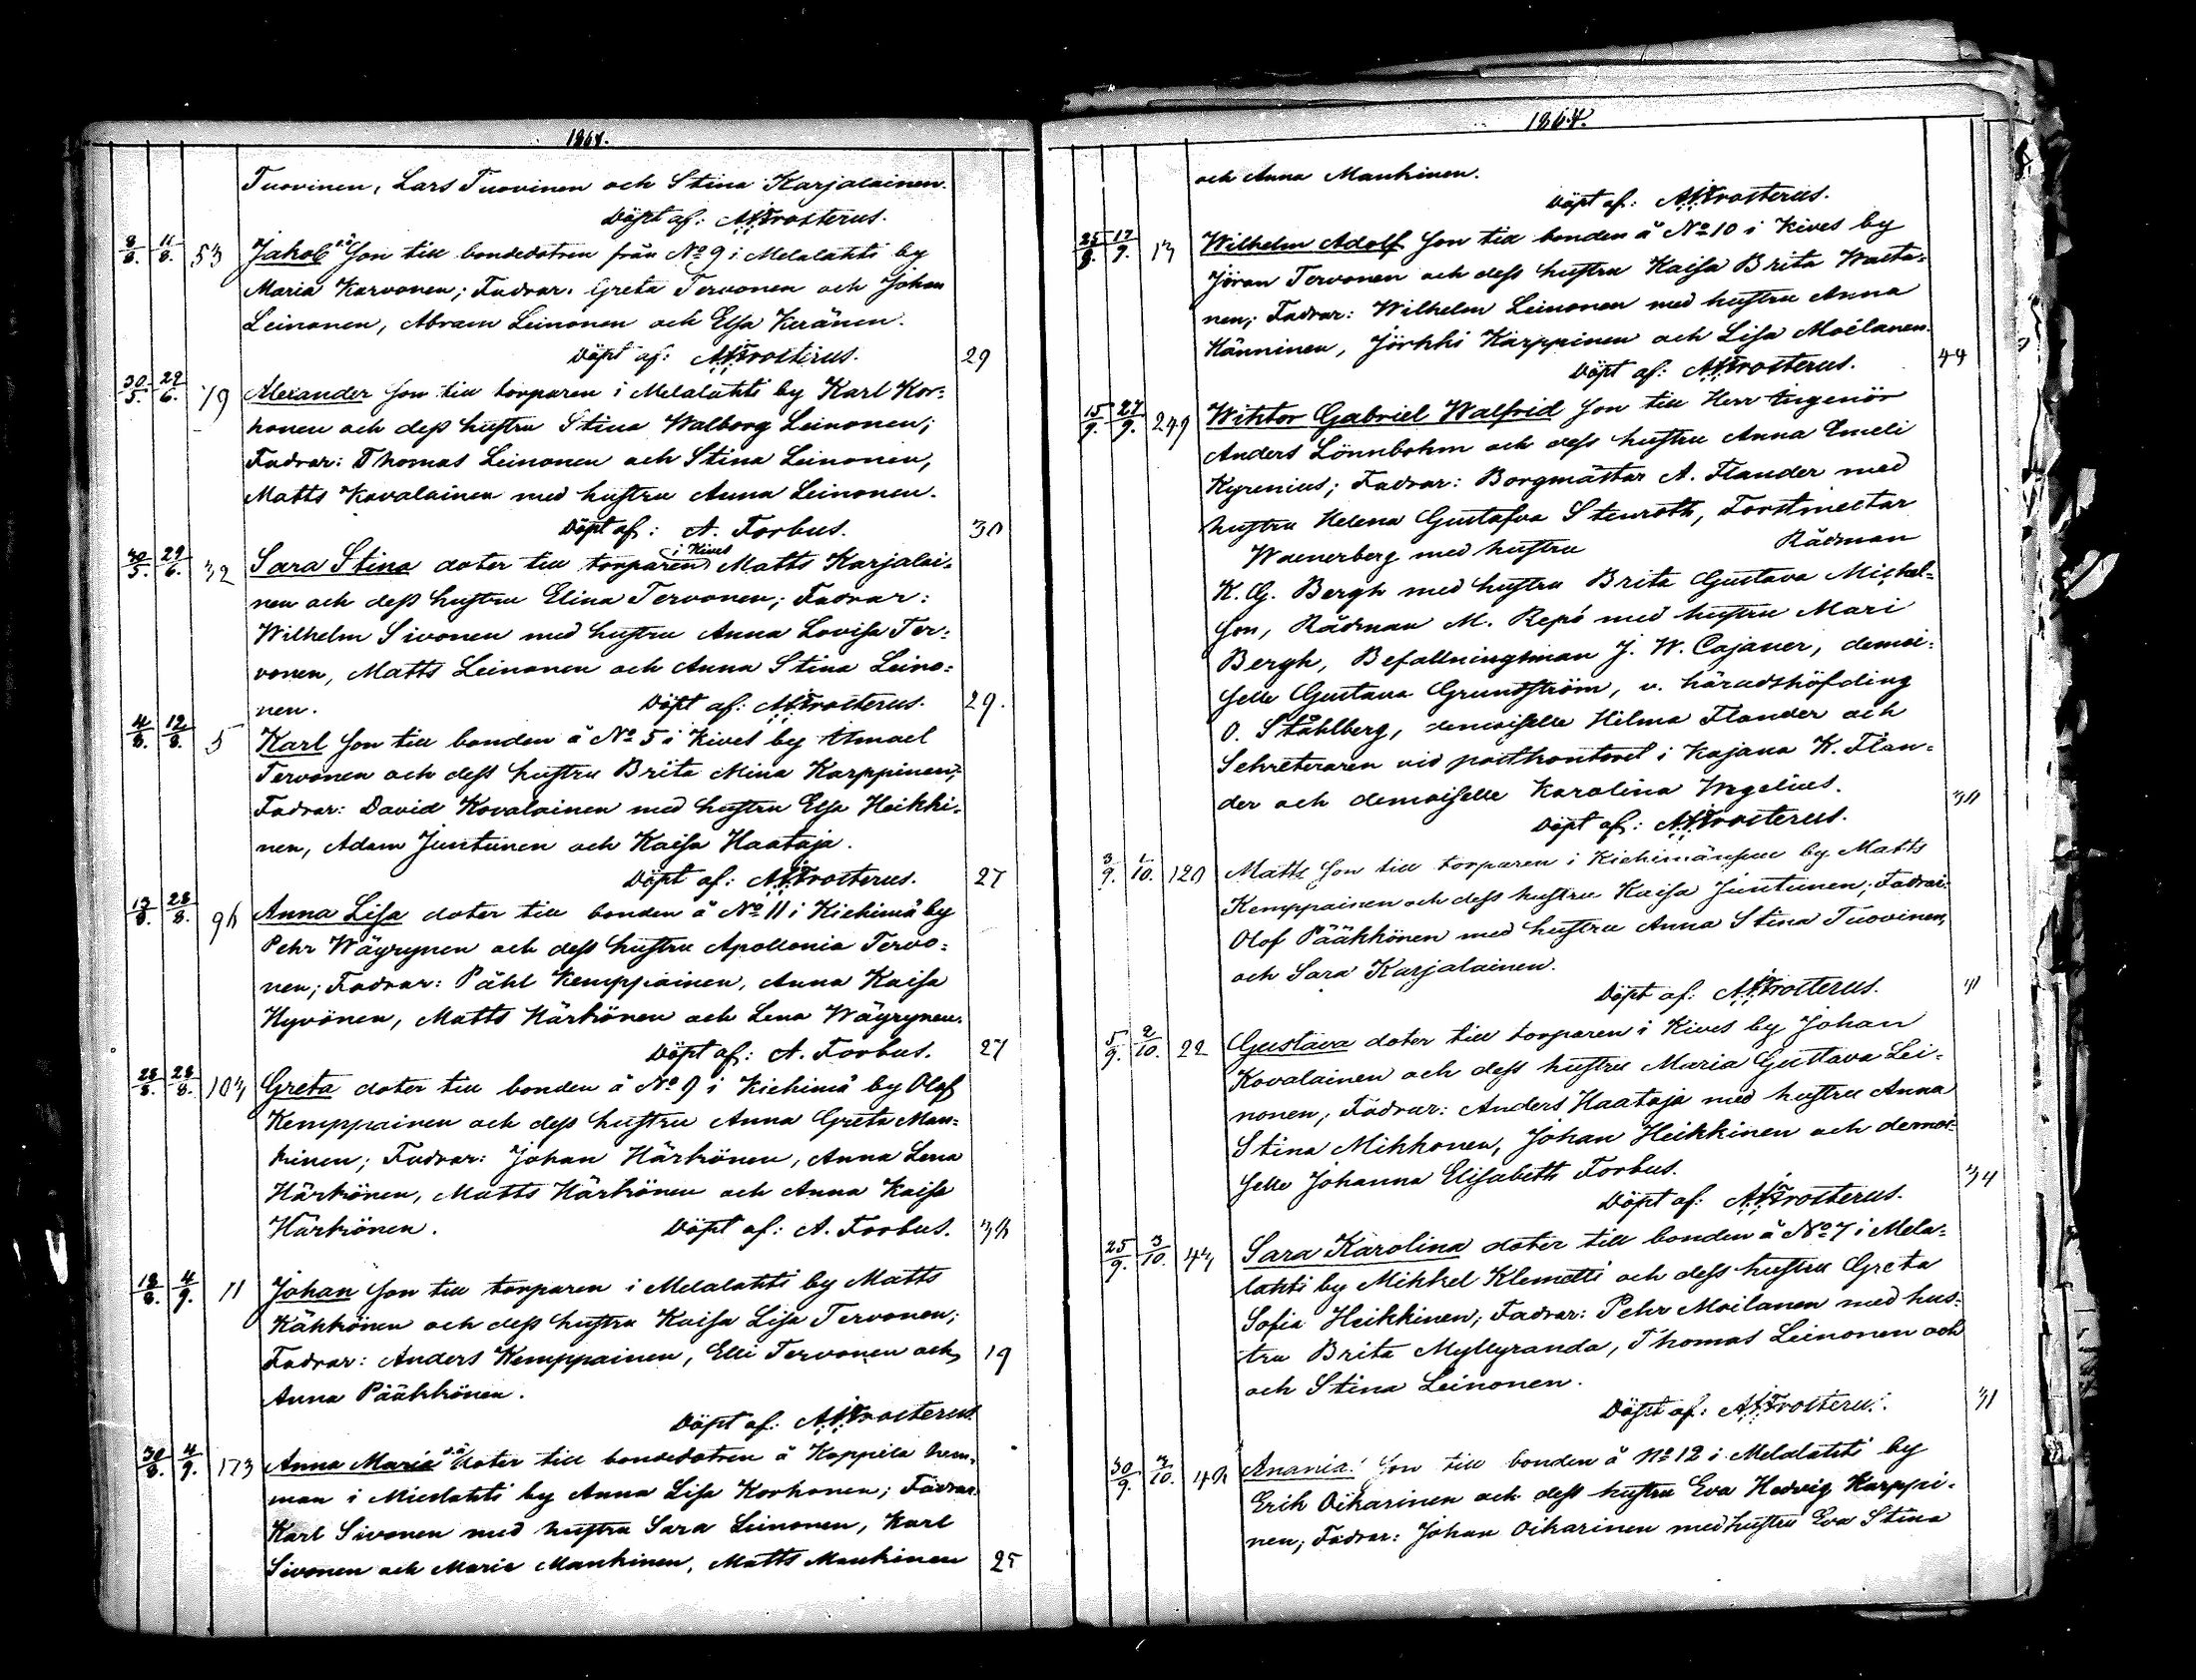 1864.
Tuovinen, Lars Tuovinen och Stina Karjalainen.
Döpt af: A. F. Frosterus.
8/8. 11/8. 53 Jakob o.ä. Son till bondedotren från No 9 i Melalahti by
Maria Karvonen; Fadrar: Greta Tervonen och Johan
Leinonen, Abram Leinonen och Elsa Keränen.
Döpt af: A. F. Frosterus. 29
30/5. 29/6. 79 Alexander Son till torparen i Melalahti by Karl Kor-
honen och dess hustru Stina Walborg Leinonen;
Fadrar: Thomas Leinonen och Stina Leinonen,
Matts Kovalainen med hustru Anna Leinonen.
Döpt af: A. Forbus. 30
30/5. 29/6. 32 Sara Stina doter till torparen i Kives Matts Karjalai-
nen och dess hustru Elina Tervonen; Fadrar:
Wilhelm Sivonen med hustru Anna Lovisa Ter-
vonen, Matts Leinonen och Anna Stina Leino-
nen. Döpt af: A. F. Frosterus. 29.
4/8. 12/8. 5 Karl Son till bonden å No 5 i Kives by
Tervonen och dess hustru Brita Mina Karppinen;
Fadrar: David Kovalainen med hustru Elsa Heikki-
nen, Adam Juntunen och Kaisa Haataja.
Döpt af: A. F. Frosterus. 27
19/8. 28/8. 96 Anna Lisa doter till bonden å No 11 i Kiehimä by
Pehr Wäyrynen och dess hustru Apollonia Tervo-
nen; Fadrar: Påhl Kemppainen, Anna Kaisa
Hyvönen, Matts Härkönen och Lena Wäyrynen.
Döpt af: A. Forbus. 27
28/8. 28/8. 103 Greta doter till bonden å No 9 i Kiehimä by Olof
Kemppainen och dess hustru Anna Greta Man-
kinen; Fadrar: Johan Härkönen, Anna Lena
Härkönen, Matts Härkönen och Anna Kaisa
Härkönen. Döpt af: A. Forbus. 36
18/8. 4/9. 71 Johan Son till torparen i Melalahti by Matts
Kähkönen och dess hustru Kaisa Lisa Tervonen;
Fadrar: Anders Kemppainen, Elli Tervonen och 19
Anna Pääkkönen.
Döpt af: A. F. Frosterus.
30/8. 4/9. 173 Anna Maria o.ä. doter till bondedotren å Koppela hem-
man i Mieslahti by Anna Lisa Korhonen; Fadrar:
Karl Sivonen med hustru Sara Leinonen, Karl
Sivonen och Maria Mankinen, Matts Mankinen 25
1864.
och Anna Mankinen.
Döpt af: A. F. Frosterus.
25/8. 17/9. 13 Wilhelm Adolf Son till bonden å No 10 i Kives by
Jöran Tervonen och dess hustru Kaisa Brita Wuota-
nen; Fadrar: Wilhelm Leinonen med hustru Anna
Känninen, Jörkki Karppinen och Lisa Moilanen.
Döpt af: A. F. Frosterus. 44
15/9. 27/9. 249 Wiktor Gabriel Walfrid Son till Herr Ingeniör
Anders Lönnbohm och dess hustru Anna Emeli
Kyrenius; Fadrar: Borgmästar A. Flander med
hustru Helena Gustafva Stenroth, Forstmestar
Waenerberg med hustru Rådman
K. G. Bergh med hustru Brita Gustava Michel-
son, Rådman M. Repo med hustru Mari
Bergh, Befallningsman J. W. Cajaner, demoi-
selle Gustava Grundström, v. häradshöfding
O. Ståhlberg, demoiselle Hilma Flander och
Sekreteraren vid postkontoret i Kajana K. Flan-
der och demoiselle Karolina Wegelius. 30
Döpt af: A. F. Frosterus.
3/9. 1/10. 120 Matts Son till torparen i Kiehimänsuu by Matts
Kemppainen och dess hustru Kaisa Juntunen; Fadrar:
Olof Pääkkönen med hustru Anna Stina Tuovinen,
och Sara Karjalainen.
Döpt af: A. F. Frosterus. 41
5/9. 2/10. 22 Gustava doter till torparen i Kives by Johan
Kovalainen och dess hustru Maria Gustava Lei-
nonen; Fadrar: Anders Haataja med hustru Anna
Stina Mikkonen, Johan Heikkinen och demoi-
selle Johanna Elisabeth Forbus.
Döpt af: A. F. Frosterus. 34
25/9. 3/10. 43 Sara Karolina doter till bonden å No 7 i Mela-
lahti by Mikkel Klemetti och dess hustru Greta
Sofia Heikkinen; Fadrar: Pehr Moilanen med hus-
tru Brita Myllyranda, Thomas Leinonen och
och Stina Leinonen.
Döpt af: A. F. Frosterus. 31
30/9. 3/10. Anania! Son till bonden å No 12 i Melalahti by
Erik Oikarinen och dess hustru Eva Hedvig Karppi-
nen; Fadrar: Johan Oikarinen med hustru Eva Stina